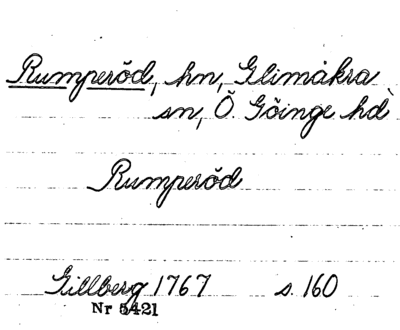 Rumperöd, hn, Glimåkra
sn, Ö. Göinge hd
Rumperöd
Gillberg 1767 s. 160
Nr 5421